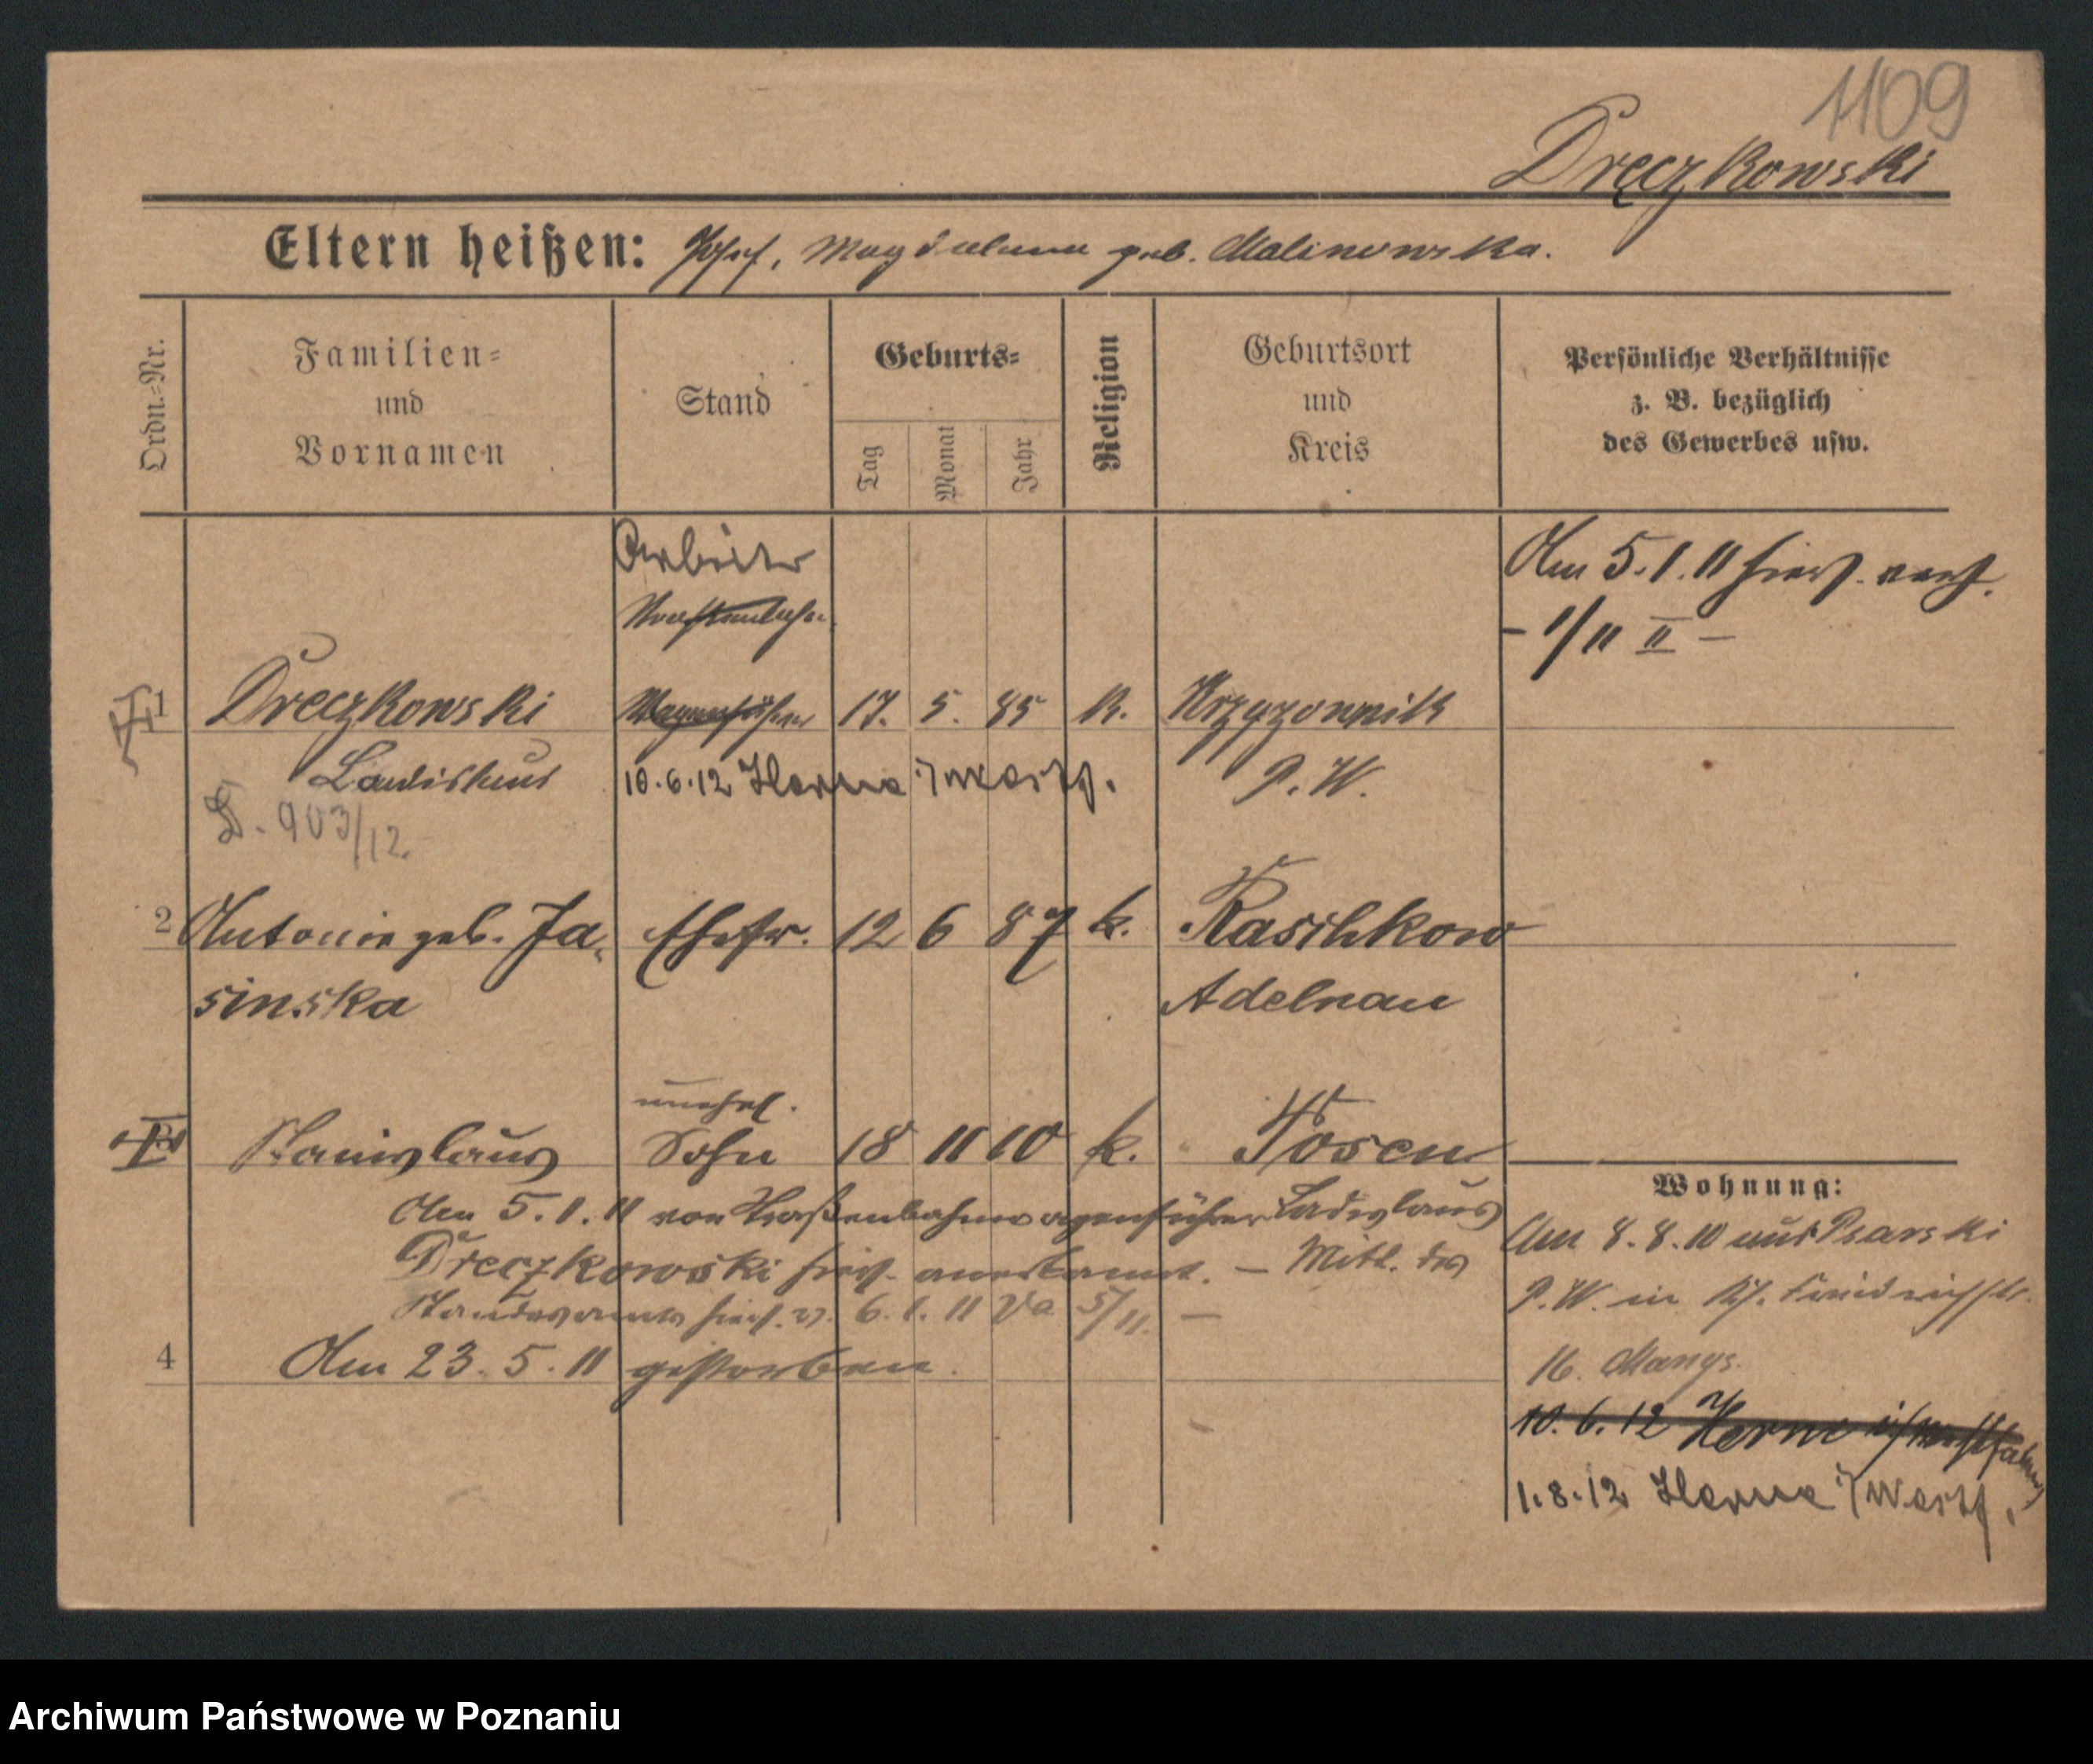 1109
Dręczkowski
Eltern heißen: Josef, Magdalena geb. Malinowska.
Ordn.=Nr.
Familien=
und
Vornamen
Stand
Geburts=
Tag
Monat
Jahr
Religion
Geburtsort
und
Kreis
Persönliche Verhältnisse
z. B. bezüglich
des Gewerbes usw.
Arbeiter
Am 5.1.11 hies. verh.
- 1/11 II -
1 Dreczkowski Wagenführer 17. 5. 85 k. Krzyzownik
Ladislaus 10.6.12 Herne i/Westf. P. W.
D. 903/12.
2 Antonie geb. Ja= Ehefr. 12 6 87 k. Raschkow
sinska Adelnau
unehel.
Stanislaus Sohn 18 11 10 k. Posen
Am 5.1.11 von Straßenbahnwagenführer Ladislaus
Dreczkowski hies. anerkannt. - Mitt. des
Standesamts hies. v. 6.1.11 Va 5/11. -
4 Am 23.5.11 gestorben.
Wohnung:
Am 8.8.10 aus Psarski
P.W. in Friedrichstr.
16.
10.6.12 Herne i/Westfalen
1.8.12 Herne i/Westf.
Archiwum Państwowe w Poznaniu